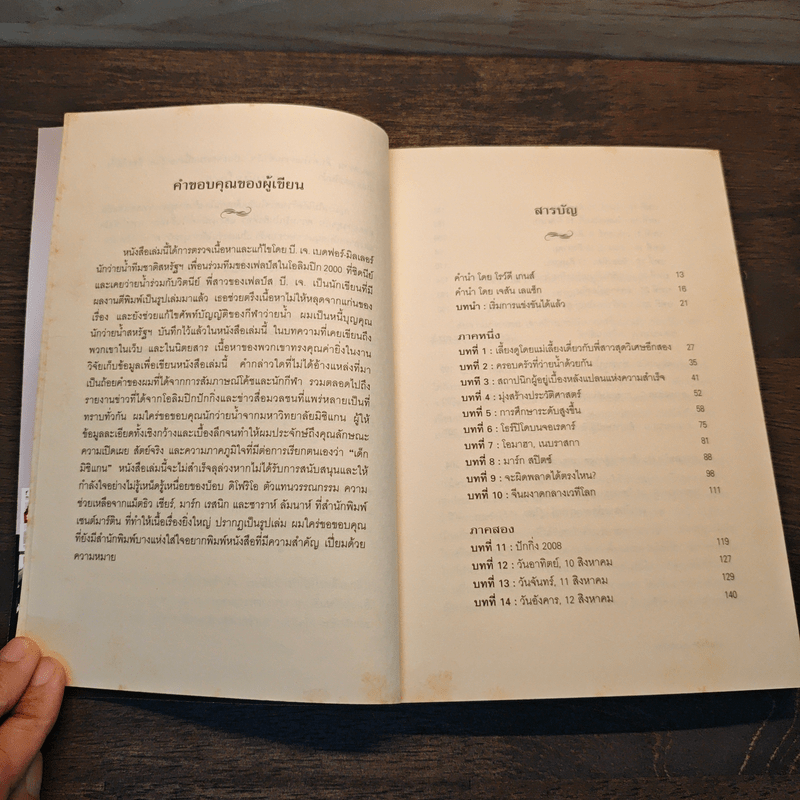 คำขอบคุณของผู้เขียน
หนังสือเล่มนี้ได้การตรวจเนื้อหาและแก้ไขโดย บี. เจ. เบดฟอร์-มิลเลอร์
นักว่ายน้ำทีมชาติสหรัฐฯ เพื่อนร่วมทีมของเฟลป์สในโอลิมปิก 2000 ที่ซิดนีย์
และเคยว่ายน้ำร่วมกับวิตนีย์ พี่สาวของเฟลป์ส บี. เจ. เป็นนักเขียนที่มี
ผลงานตีพิมพ์เป็นรูปเล่มมาแล้ว เธอช่วยตรึงเนื้อหาไม่ให้หลุดจากแก่นของ
เรื่อง และยังช่วยแก้ไขศัพท์บัญญัติของกีฬาว่ายน้ำ ผมเป็นหนี้บุญคุณ
นักว่ายน้ำสหรัฐฯ บันทึกไว้แล้วในหนังสือเล่มนี้ ในบทความที่เคยเขียนถึง
พวกเขาในเว็บ และในนิตยสาร เนื้อหาของพวกเขาทรงคุณค่ายิ่งในงาน
วิจัยเก็บข้อมูลเพื่อเขียนหนังสือเล่มนี้ คำกล่าวใดที่ไม่ได้อ้างแหล่งที่มา
เป็นถ้อยคำของผมที่ได้จากการสัมภาษณ์โค้ชและนักกีฬา รวมตลอดไปถึง
รายงานข่าวที่ได้จากโอลิมปิกปักกิ่งและข่าวสื่อมวลชนที่แพร่หลายเป็นที่
ทราบทั่วกัน ผมใคร่ขอขอบคุณนักว่ายน้ำจากมหาวิทยาลัยมิชิแกน ผู้ให้
ข้อมูลละเอียดทั้งเชิงกว้างและเบื้องลึกจนทำให้ผมประจักษ์ถึงคุณลักษณะ
ความเปิดเผย สัตย์จริง และความภาคภูมิใจที่มีต่อการเรียกตนเองว่า “เด็ก
มิชิแกน” หนังสือเล่มนี้จะไม่สำเร็จลุล่วงหากไม่ได้รับการสนับสนุนและให้
กำลังใจอย่างไม่รู้เหน็ดรู้เหนื่อยของบ็อบ ดิโฟริโอ ตัวแทนวรรณกรรม ความ
ช่วยเหลือจากแม็ตธิว เชียร์, มาร์ก เรสนิก และซาราห์ ลัมนาห์ ที่สำนักพิมพ์
เซนต์มาร์ติน ที่ทำให้เนื้อเรื่องยิ่งใหญ่ ปรากฏเป็นรูปเล่ม ผมใคร่ขอขอบคุณ
ที่ยังมีสำนักพิมพ์บางแห่งใส่ใจอยากพิมพ์หนังสือที่มีความสำคัญ เปี่ยมด้วย
ความหมาย
สารบัญ
คำนำ โดย โรว์ดี เกนส์ 13
คำนำ โดย เจสัน เลแซ็ก 15
บทนำ : เริ่มการแข่งขันได้แล้ว 21
ภาคหนึ่ง
บทที่ 1 : เลี้ยงดูโดยแม่เลี้ยงเดี่ยวกับพี่สาวสุดวิเศษอีกสอง 27
บทที่ 2 : ครอบครัวที่ว่ายน้ำด้วยกัน 35
บทที่ 3 : สถาปนิกผู้อยู่เบื้องหลังแปลนแห่งความสำเร็จ 41
บทที่ 4 : มุ่งสร้างประวัติศาสตร์ 52
บทที่ 5 : การศึกษาระดับสูงขึ้น 58
บทที่ 6 : โธร์ปิโดบนจอเรดาร์ 75
บทที่ 7 : โอมาฮา, เนบราสกา 81
บทที่ 8 : มาร์ก สปิตซ์ 88
บทที่ 9 : จะผิดพลาดได้ตรงไหน? 98
บทที่ 10 : จีนผงาดกลางเวทีโลก 111
ภาคสอง
บทที่ 11 : ปักกิ่ง 2008 119
บทที่ 12 : วันอาทิตย์, 10 สิงหาคม 127
บทที่ 13 : วันจันทร์, 11 สิงหาคม 129
บทที่ 14 : วันอังคาร, 12 สิงหาคม 140